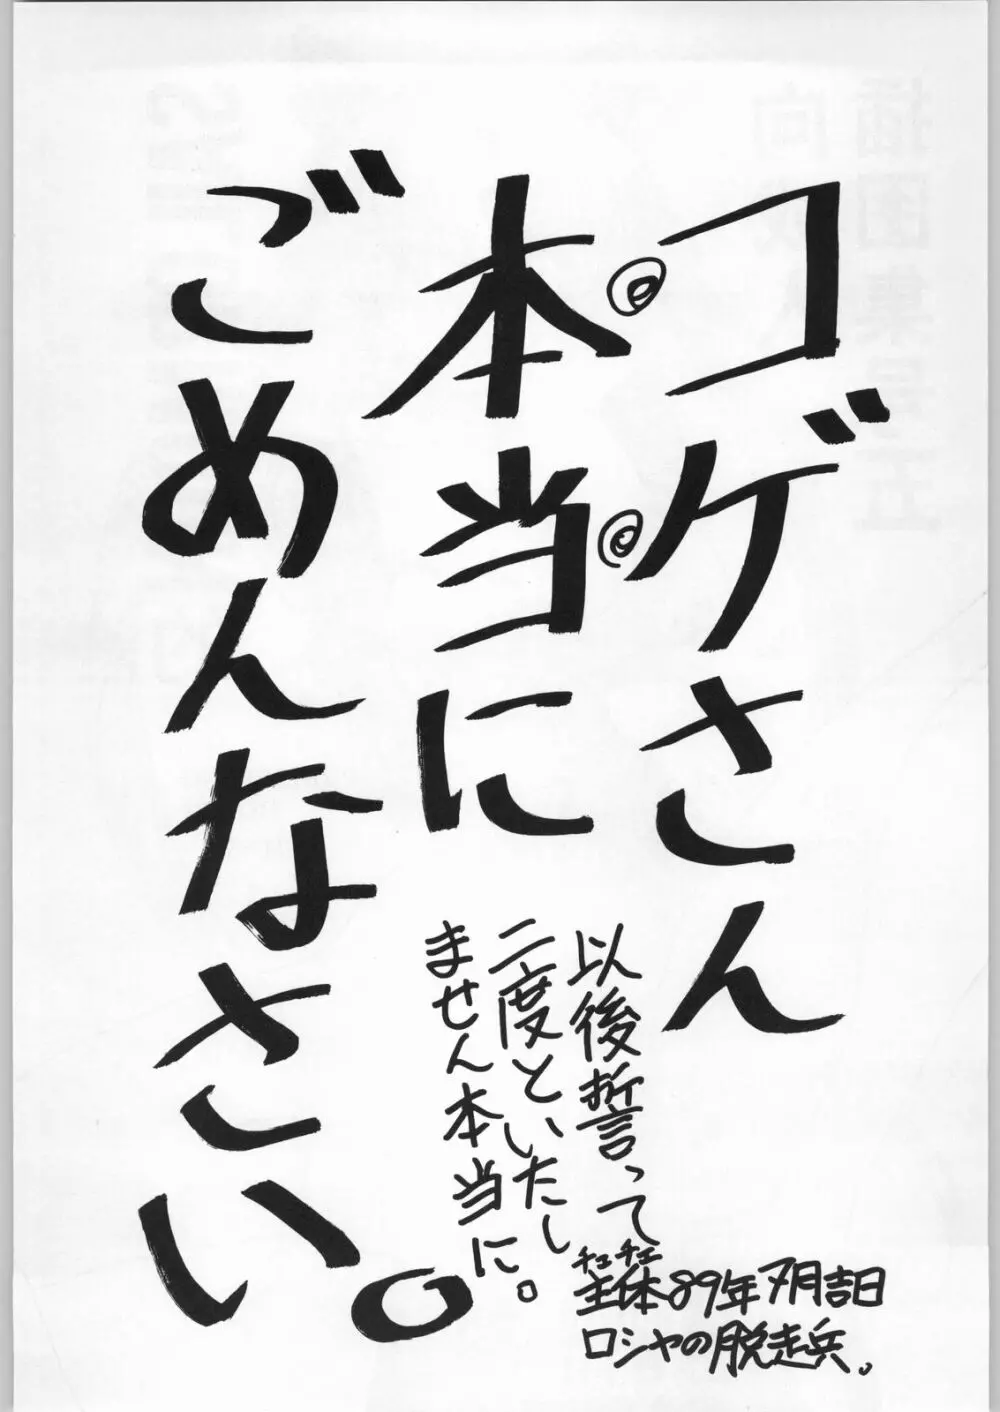 コゲさん
本当に
ごめんなさい。
以後誓って
二度といたし
ません本当に。
チュチェ
主体89年7月吉日
ロシヤの脱走兵。